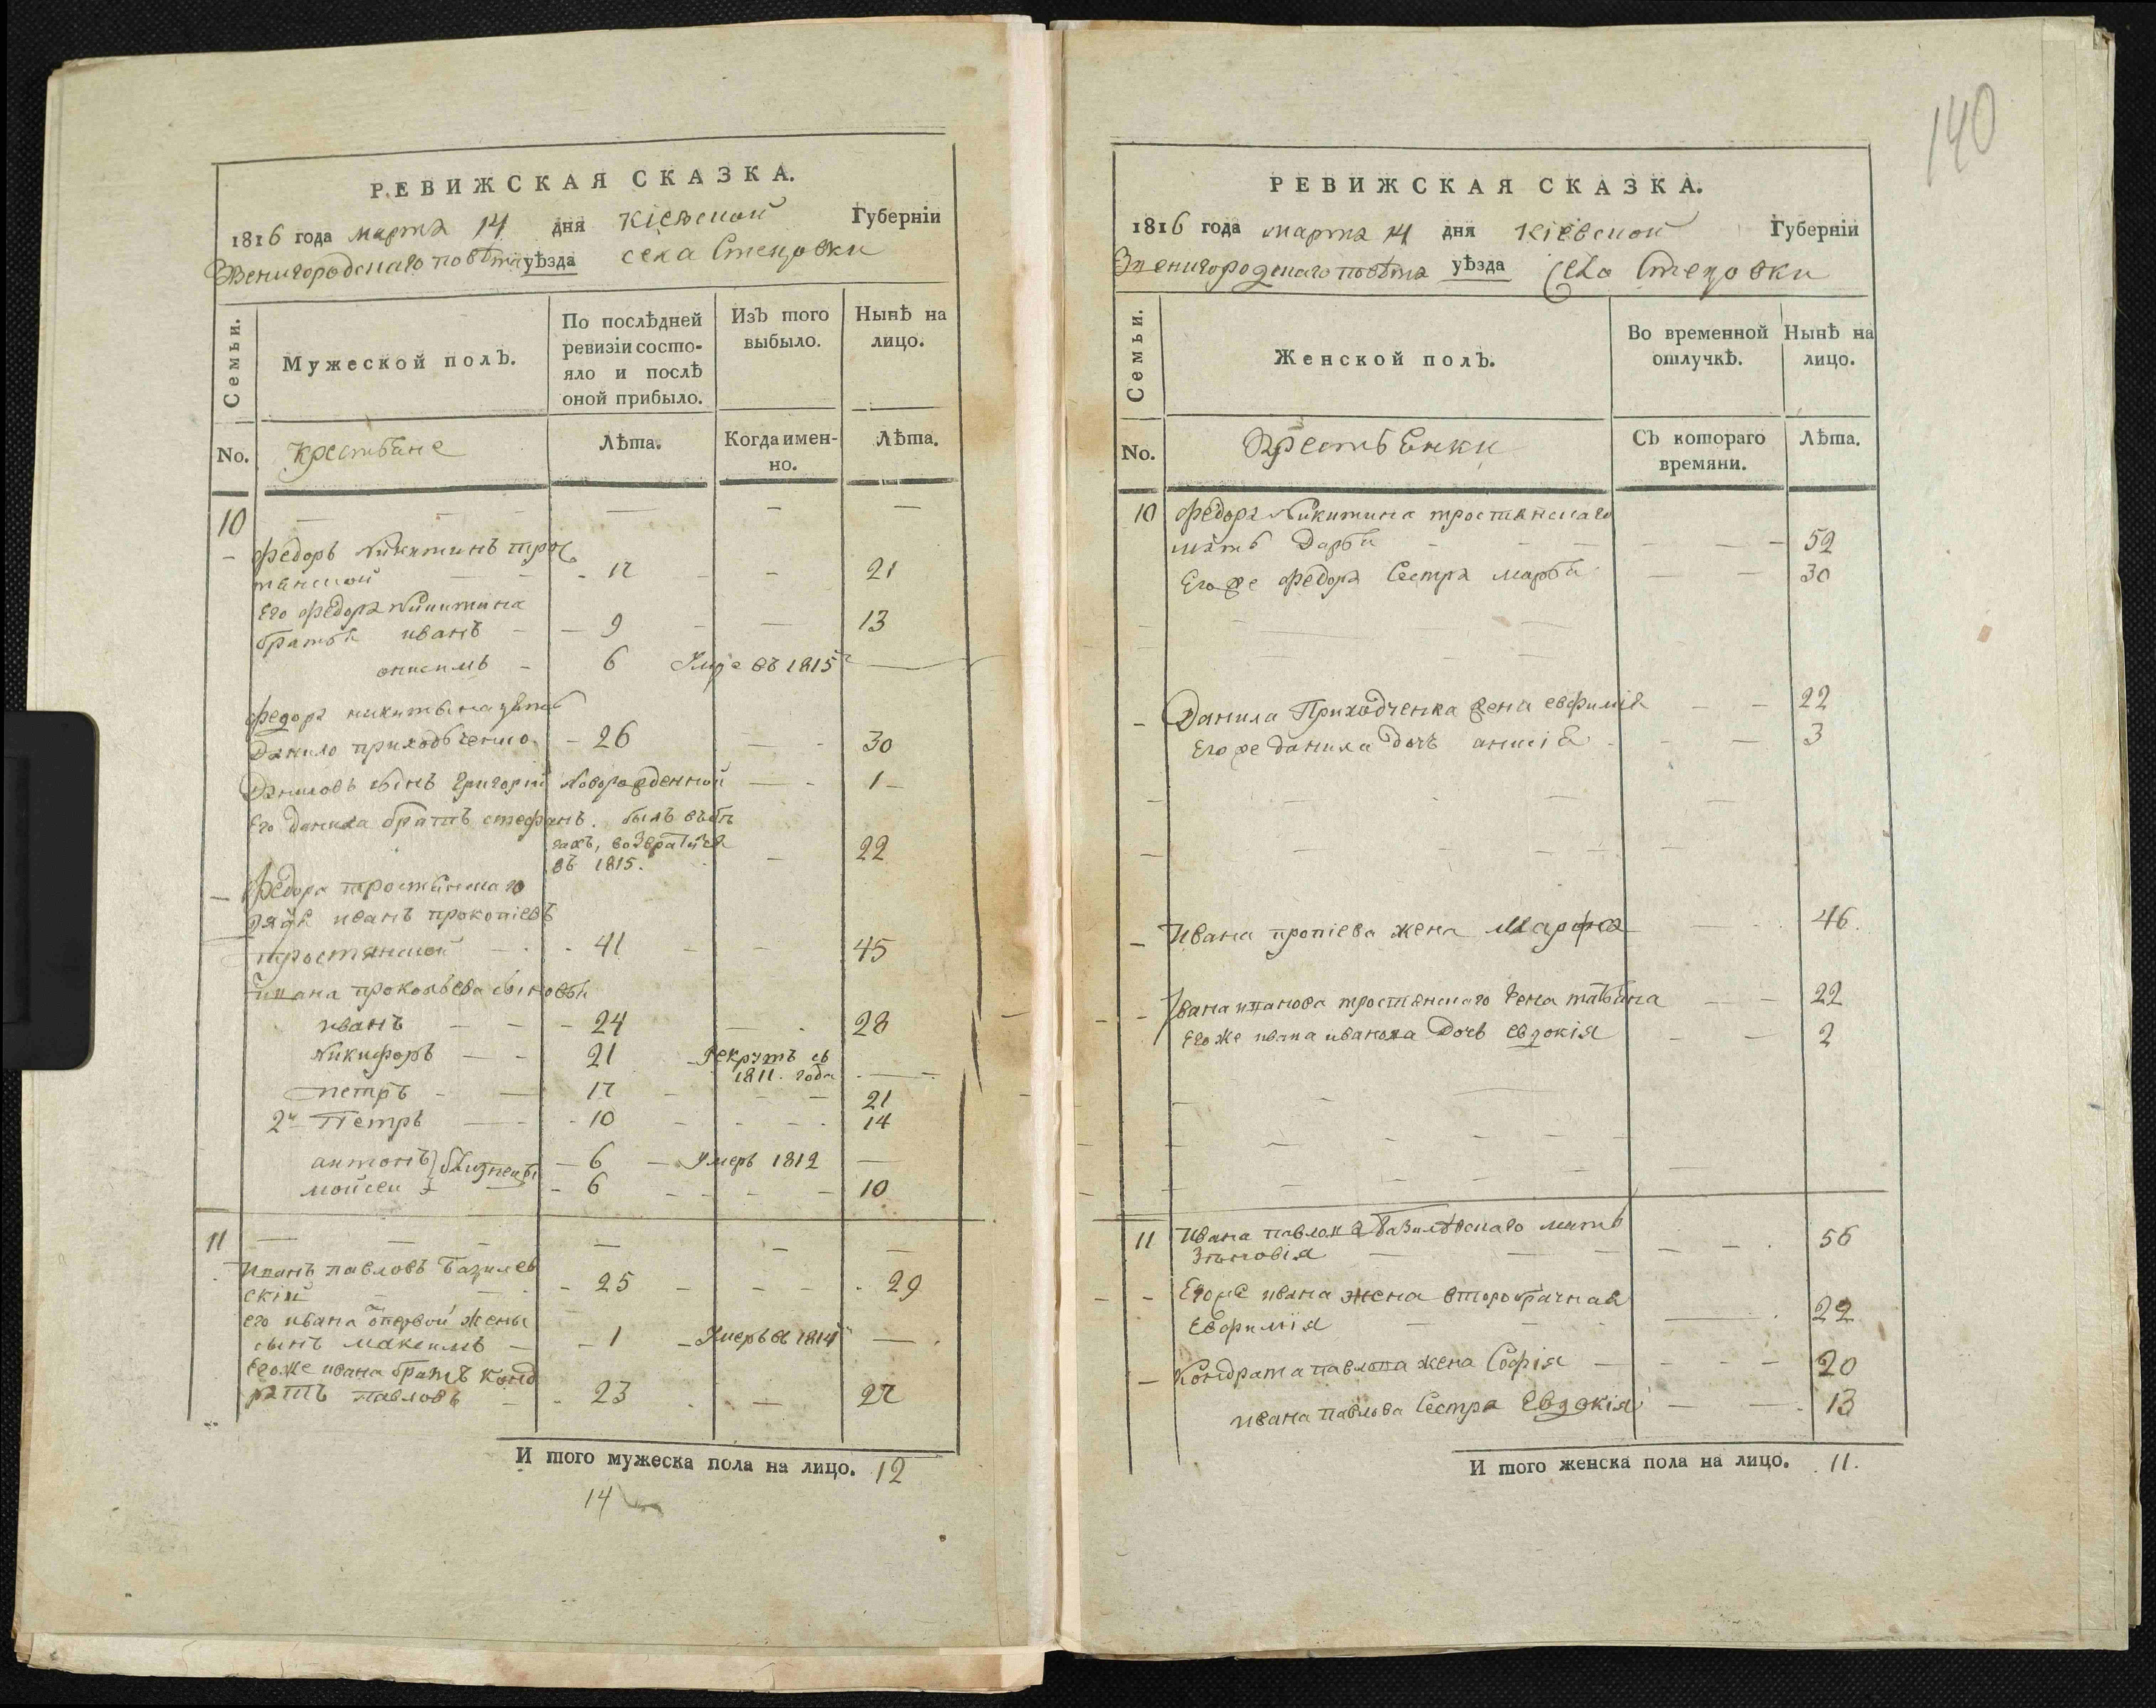 РЕВИЖСКАЯ СКАЗКА.
1816 года марта 14 дня Кіевской Губерніи
Звенигородскаго повѣта уѣзда села Стецовки
Семьи.
Мужеской полъ.
По послѣдней ревизіи состо-
яло и послѣ
оной прибыло.
Изъ того
выбыло.
Нынѣ на
лицо.
No.
Крестьяне
Лѣта.
Когда имен-
но.
Лѣта.
10
Федоръ Никитинъ трос
тянской 17 21
Его Федора Никитина
братья иванъ 9 13
онисимъ 6 Умре въ 1815
Федора никитина зять
Данило приходченко 26 30
Даниловъ сынъ Григорій Новорожденной 1
Его данила братъ стефанъ. былъ въ бѣ
гахъ, возвратился
въ 1815. 22
Федора тростянскаго
дядя иванъ прокопіевъ
тростянской 41 45
Ивана прокопьева сыновья
иванъ 24 28
Никифоръ 21 Рекрутъ съ
1811. года
петръ 17 21
2й Петръ 10 14
антонъ близнецы 6 Умеръ 1812
мойсей 6 10
11
Иванъ павловъ Базилев
скій 25 29
его ивана отпервой жены
сынъ максимъ 1 Умеръ въ 1814
Его же ивана братъ конд
ратъ павловъ 23 27
И того мужеска пола на лицо. 12
14
140
РЕВИЖСКАЯ СКАЗКА.
1816 года марта 14 дня Кіевской Губерніи
Звенигородскаго повѣта уѣзда Села Стецовки
Семьи.
Женской полъ.
Во временной
отлучкѣ.
Нынѣ на
лицо.
No.
Крестьянки
Съ котораго
времяни.
Лѣта.
10 Федора Никитина тростянскаго
мать Дарья 52
Его же Федора Сестра марья 30
Данила Приходченка жена евфимія 22
Его же данила Дочь анисія 3
Ивана пропіева жена Марфа 46.
Ивана иванова тростянскаго жена татьяна 22
Его же ивана иванова Дочь евдокія 2
11 Ивана павлова Базилевскаго мать
Зѣновія 56
Егоже ивана жена второбрачная
Евфимія 22
Кондрата павлова жена Софія 20
ивана павлова Сестра Евдокія 13
И того женска пола на лицо. 11.